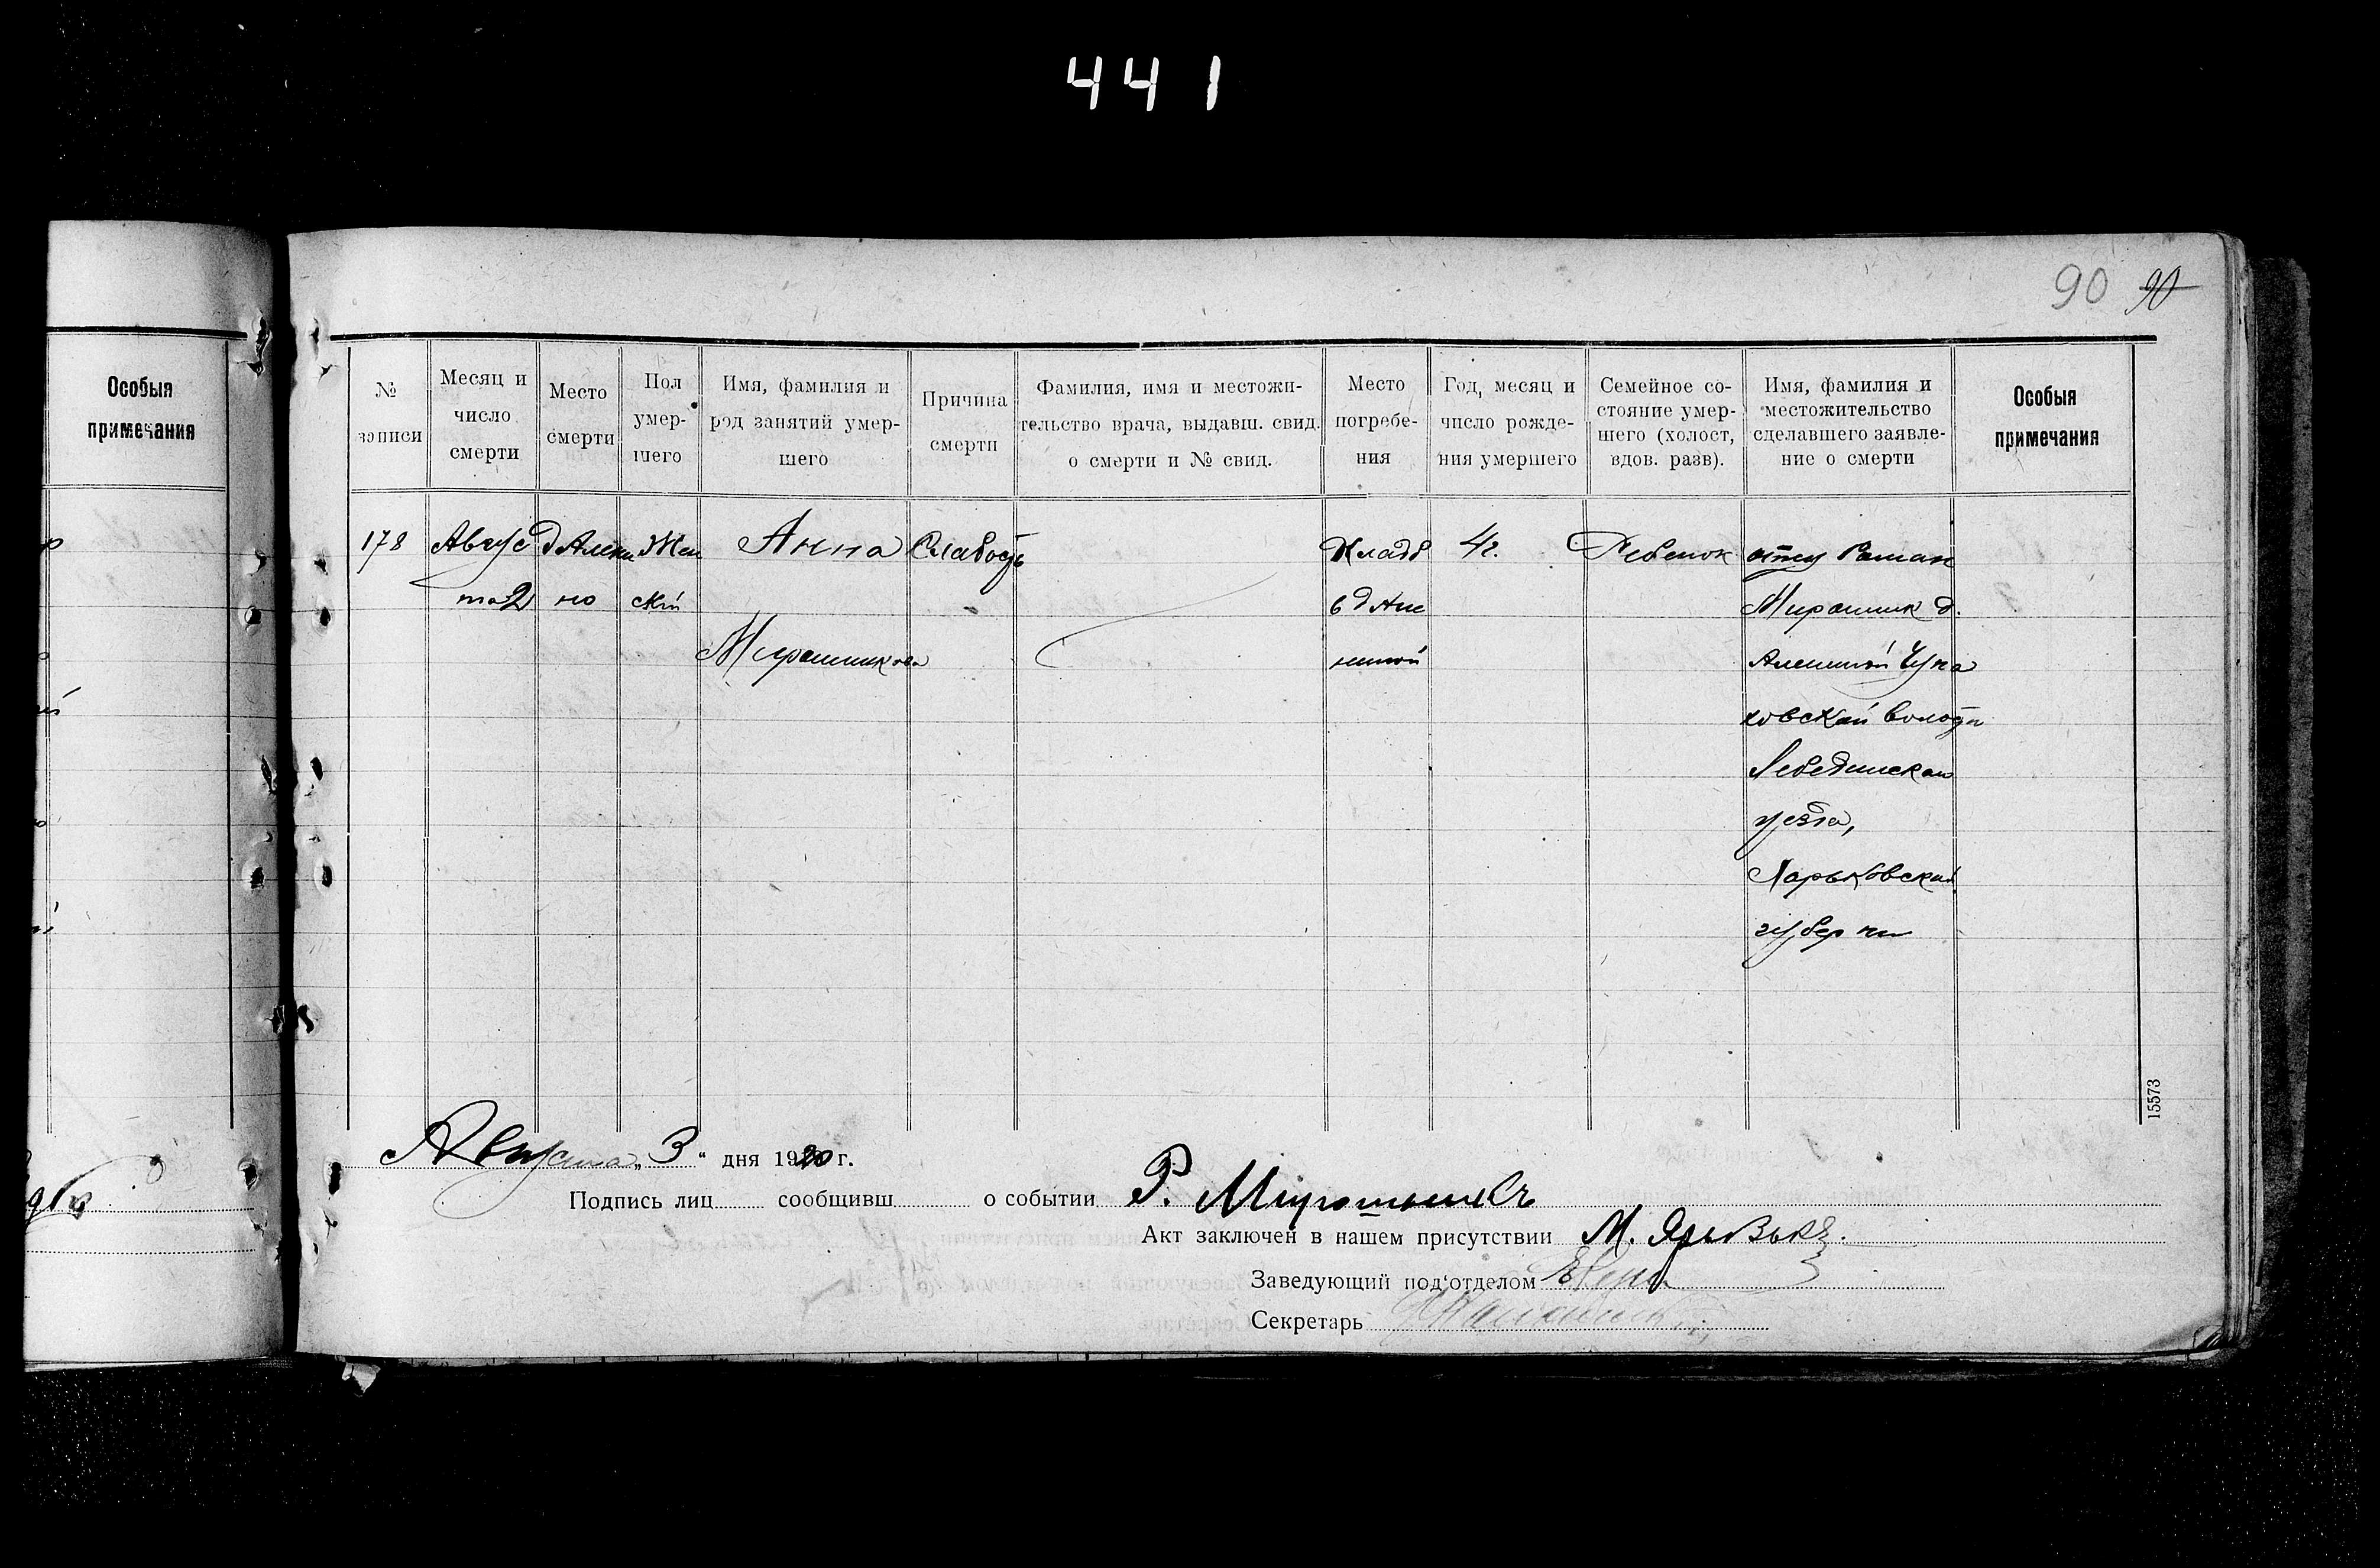 441
90 90
Особыя
примечания
№
записи
Месяц и
число
смерти
Место
смерти
Пол
умер-
шего
Имя, фамилия и
род занятий умер-
шего
Причина
смерти
Фамилия, имя и местожи-
тельство врача, выдавш. свид.
о смерти и № свид.
Место
погребе-
ния
Год, месяц и
число рожде-
ния умершего
Семейное со-
стояние умер-
шего (холост,
вдов. разв).
Имя, фамилия и
местожительство
сделавшего заявле-
ние о смерти
Особыя
примечания
178
Авгус
та 2
но
Жен
ский
Анна
Слабость
Кладб
4 г.
Ребенок
отец Роман
Мирошник д.
Чупа
ховской волости
Лебединскаго
уезда,
Харьковской
губернии
15573
Августа „ 3 “ дня 1920 г.
Подпись лиц сообщивш о событии Р.
Акт заключен в нашем присутствии М.
Заведующий под'отделом
Секретарь